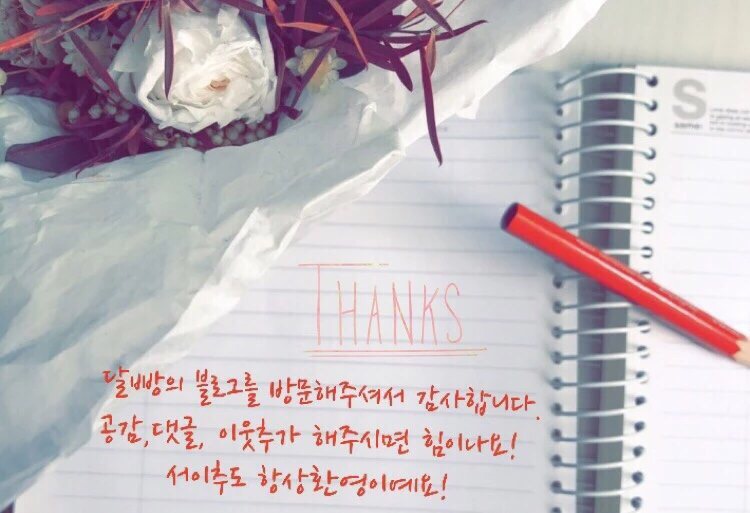 S
same-
THANKS
달빵의 블로그를 방문해주셔서 감사합니다.
공감,댓글, 이웃추가 해주시면 힘이나요!
서이추도 항상환영이예요!